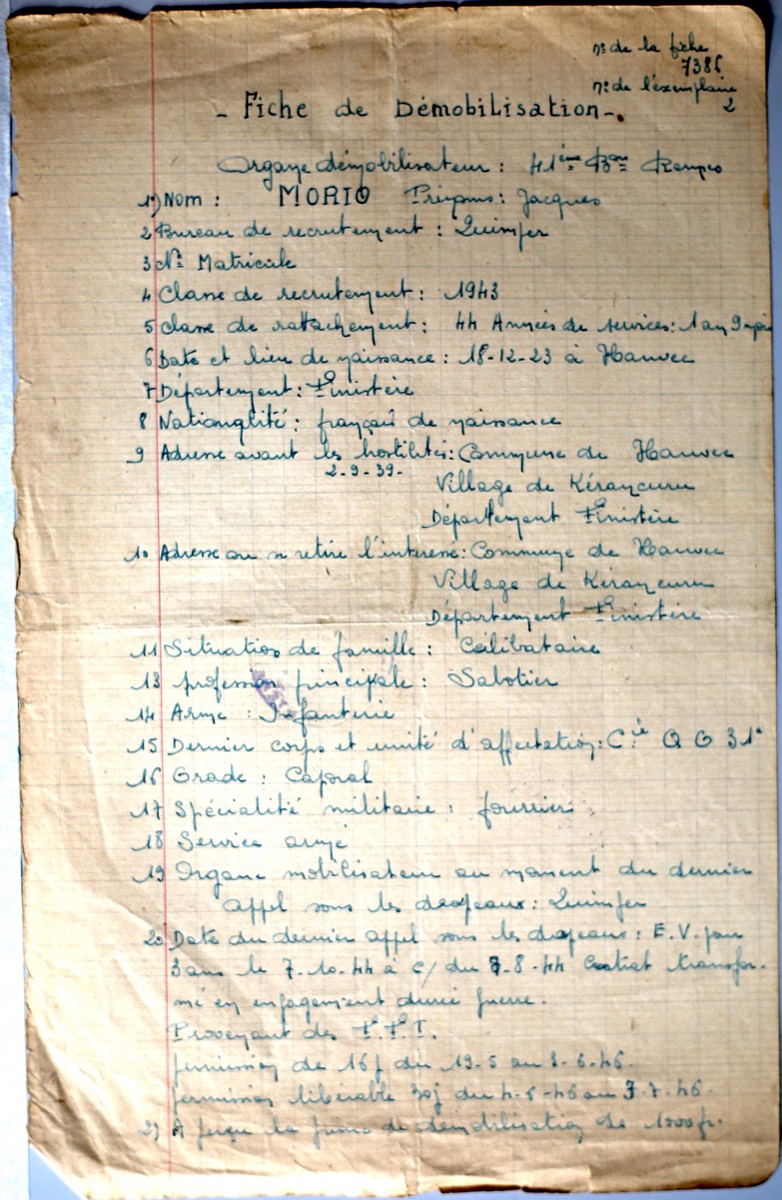 n° de la fiche
7386
n° de l'exemplaire
2
- Fiche de Démobilisation -.
Organe démobilisateur : 41ème Bon
1) Nom : MORIO Prénoms : Jacques
2 Bureau de recrutement : Quimper
3 N° Matricule
4 Classe de recrutement : 1943
5 Classe de rattachement : 44 Années de services : 1 an 9 mois
6 Date et lieu de naissance : 18-12-23 à Hanvec
7 Département : Finistère
8 Nationalité : français de naissance
9 Adresse avant les hostilités : Commune de Hanvec
2-9-39-
Village de Kérancuru
Département Finistère
10 Adresse ou se retire l'interessé : Commune de Hanvec
Village de Kérancuru
Département Finistère
11 Situation de famille : Célibataire
13 profession principale : Sabotier
14 Arme : Infanterie
15 Dernier corps et unité d'affectation : Cie Q G 31e
16 Grade : Caporal
17 Spécialité militaire : fourrier
18 Service armé
19 Organe mobilisateur au moment du dernier
appel sous les drapeaux : Quimper
20 Date du dernier appel sous les drapeaux : E.V. pour
3 ans le 7-10-44 à c/ du 8-44 Contrat transfor-
mé en engagement durée guerre.
Provenant des F.F.I.
permission de 16 j du 19-5 au 3-6-46.
permission libérable 30j du 4-6-46 au 3-7-46.
21 A perçu la prime de démobilisation de 1000 fr.